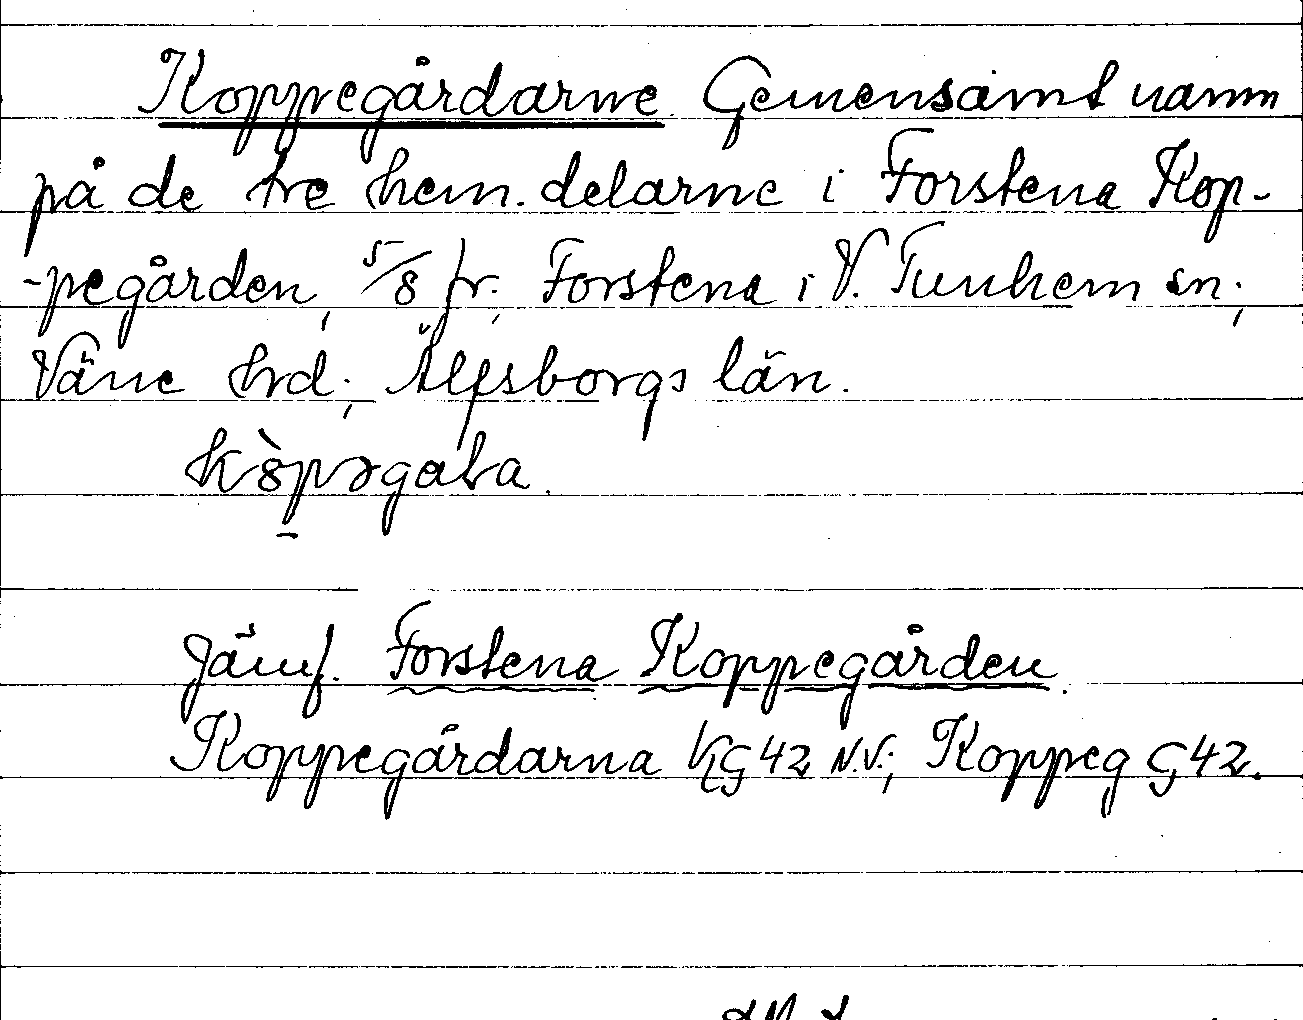 Koppegårdarne. Gemensamt namn
på de tre hem. delarne i Forstena Kop-
-pegården, 5/8 fr. Forstena i V. Tunhem sn;
Väne hrd; Älfsborgs län.
Jämf. Forstena Koppegården.
Koppegårdarna KG42 N.V.; Koppeg G42.